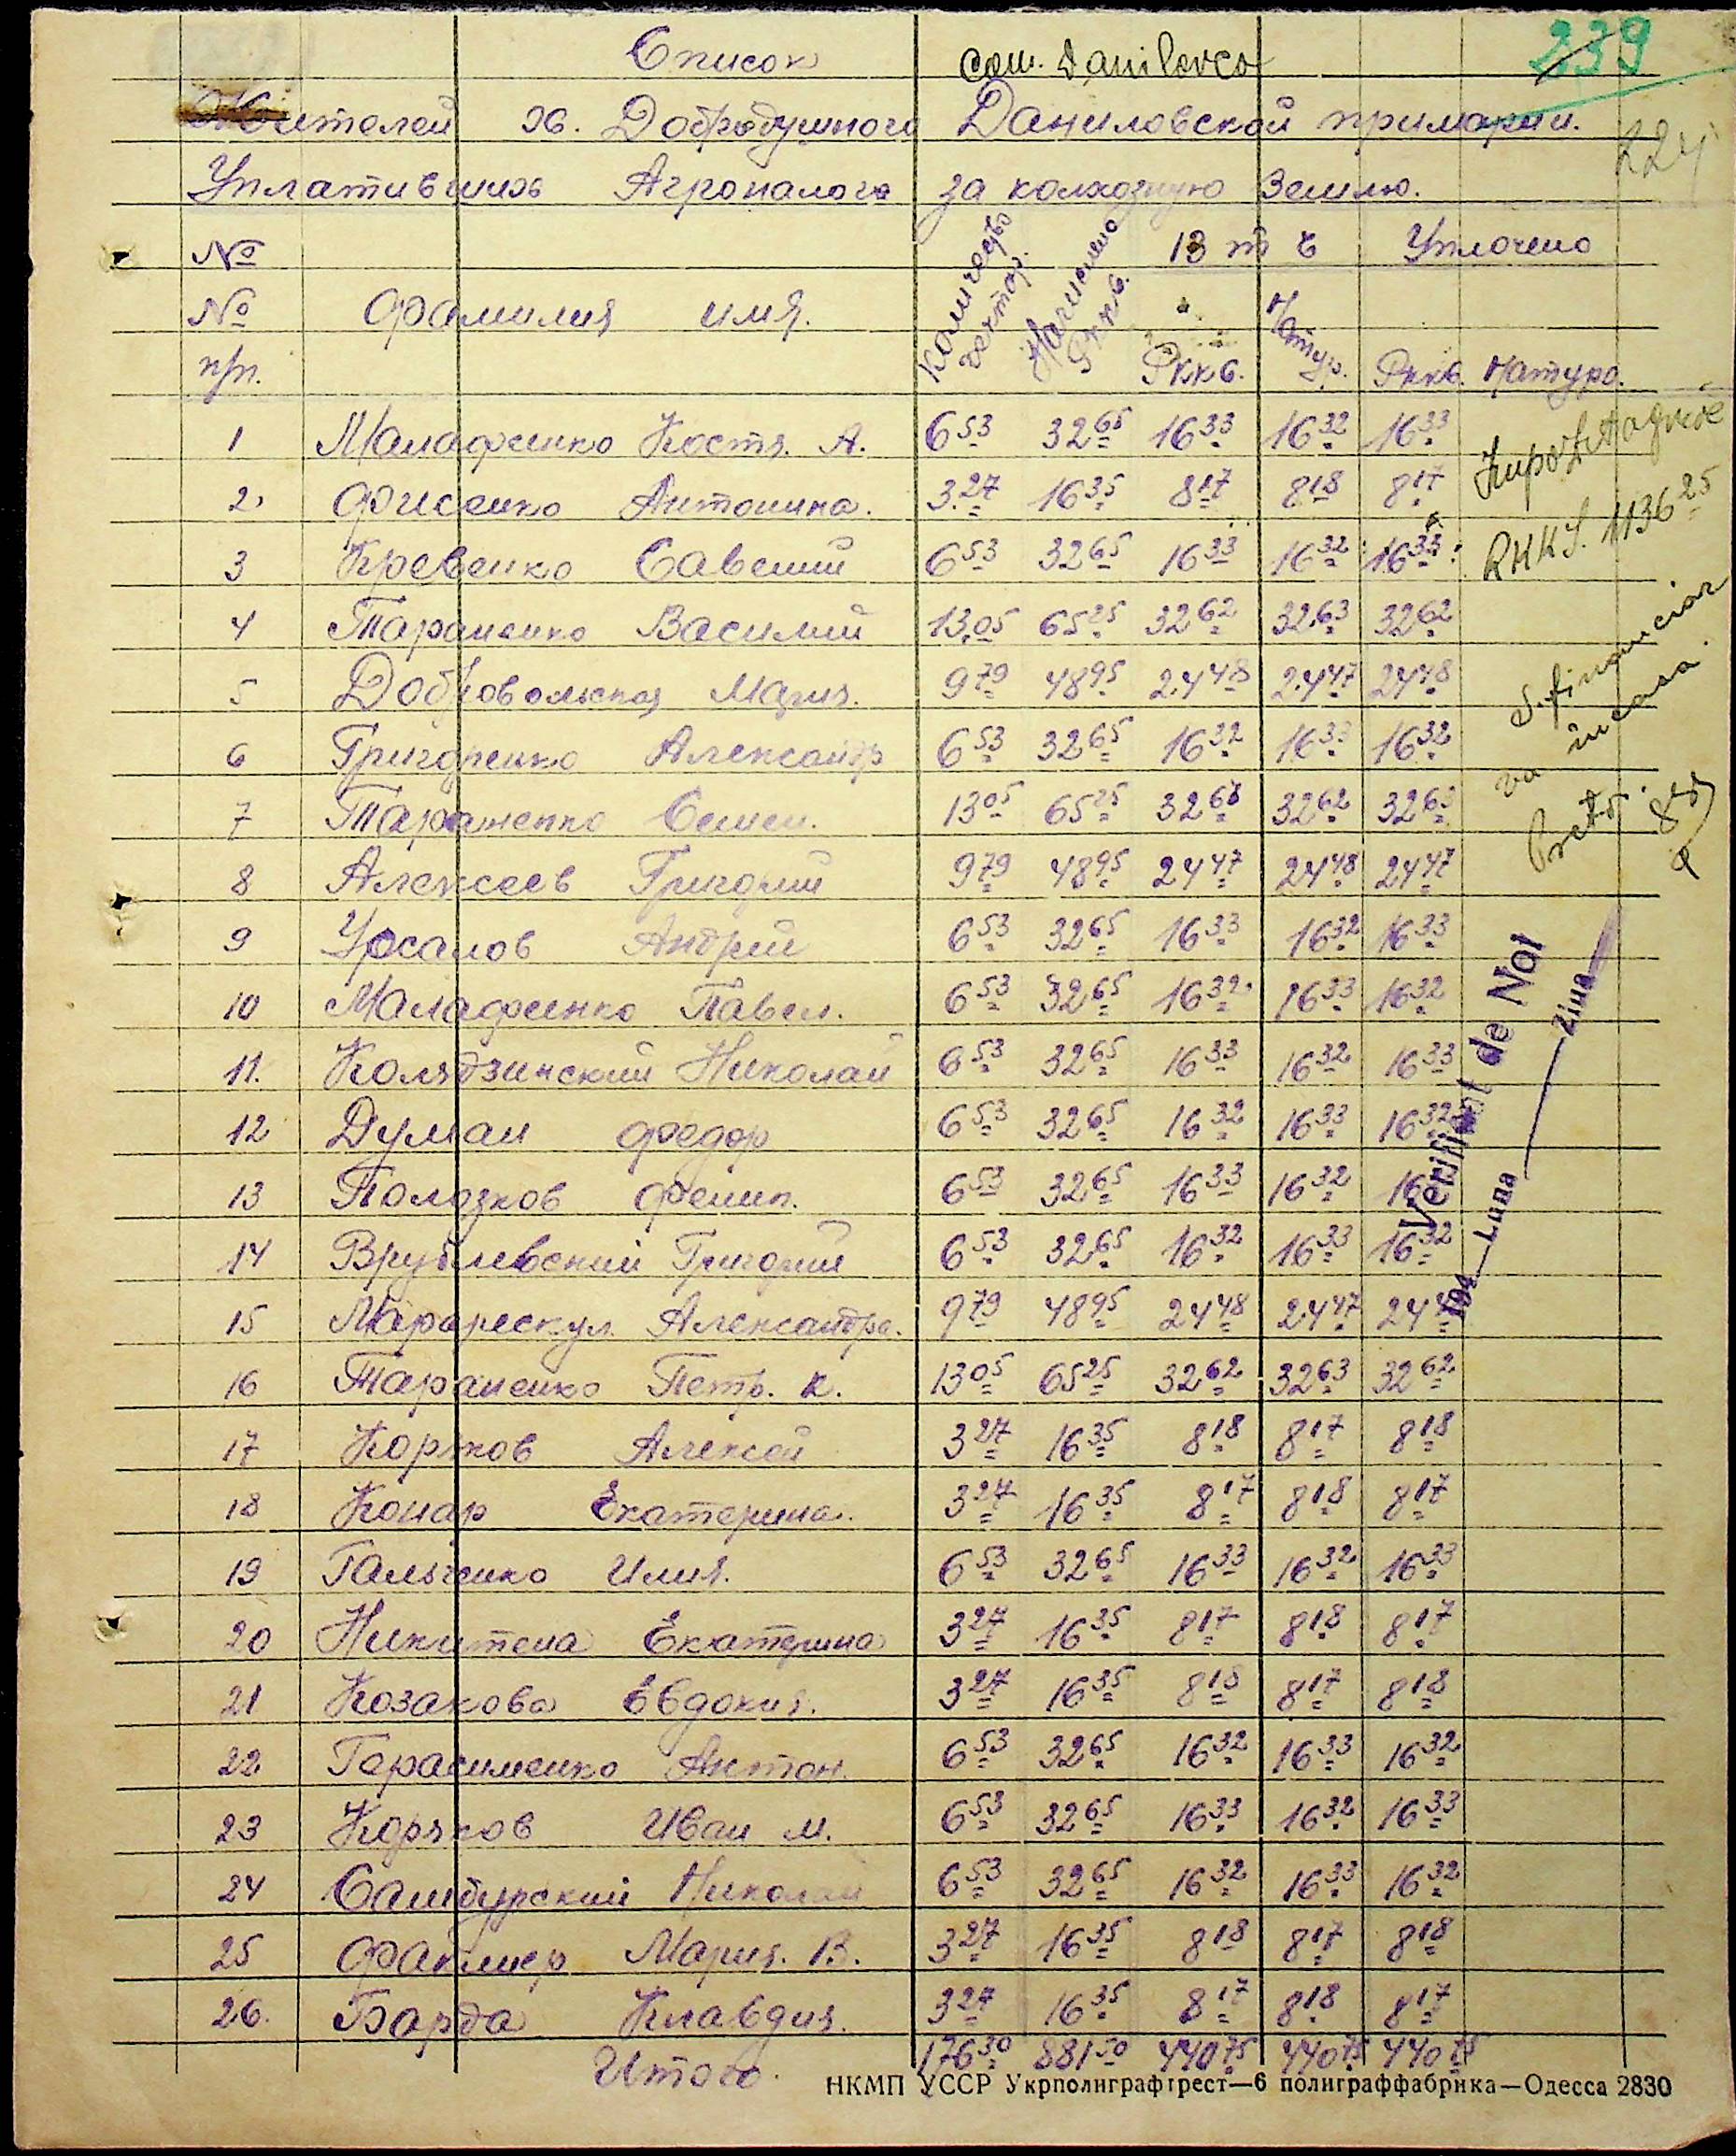 Список com. Danilovca 239
Жителей х. Добродушного Даниловской примарии. 224
Уплативших Агроналога за колхозную землю.
№ Количество гектар. Начислено Рккв. В т ч Уплочено
№ Фамилия имя.
пп. Рккв. Натур. Рккв. Натуро.
1 Малафеенко Костя. А. 6 53 32 65 16 33 16 32 16 33
2. Фисенко Антонина. 3.27 16 35 8 17 8 18 8 17
3 Кревенко Савелий 6 53 32 65 16 33 16 32 16 33
RKKS. 1136 25
4 Тараненко Василий 13,05 65 25 32 62 32 63 32 62
5 Добровольская Мария. 9 79 48 95 24 48 24 47 24 48
S. financiar
6 Григоренко Александр 6 53 32 65 16 32 16 33 16 32
va incasa
7 Тараненко Семен. 13 05 65 25 32 63 32 62 32 63
8 Алексеев Григорий 9 79 48 95 24 47 24 48 24 47
9 Усалов Андрей 6 53 32 65 16 33 16 32 16 33
10 Малафеенко Павел. 6 53 32 65 16 32 16 33 16 32
11. Колядзинский Николай 6 53 32 65 16 33 16 32 16 33
12 Думан Федор 6 53 32 65 16 32 16 33 16 32
13 Полозков Филип. 6 53 32 65 16 33 16 32 16
14 Врублевский Григорий 6 53 32 65 16 32 16 33 16 32
15 Александра. 9 79 48 95 24 48 24 47 24
16 Тараненко Петр. К. 13 05 65 25 32 62 32 63 32 62
17 Коржов Алексей 3 27 16 35 8 18 8 17 8 18
18 Конар Екатерина. 3 27 16 35 8 17 8 18 8 17
19 Гальченко Илия. 6 53 32 65 16 33 16 32 16 33
20 Никитена Екатерина 3 27 16 35 8 17 8 18 8 17
21 Козакова Евдокия. 3 27 16 35 8 18 8 17 8 18
22 Герасименко Антон. 6 53 32 65 16 32 16 33 16 32
23 Коряков Иван М. 6 53 32 65 16 33 16 32 16 33
24 Самбурский Николай 6 53 32 65 16 32 16 33 16 32
25 Мария. В. 3 27 16 35 8 18 8 17 8 18
26. Барда Клавдия. 3 27 16 35 8 17 8 18 8 17
Итого. 176 30 881 50 440 75 440 75 440 75
Verificat de Noi
194 Luna Ziua
НКМП УССР Укрполиграфтрест—6 полиграффабрика—Одесса 2830